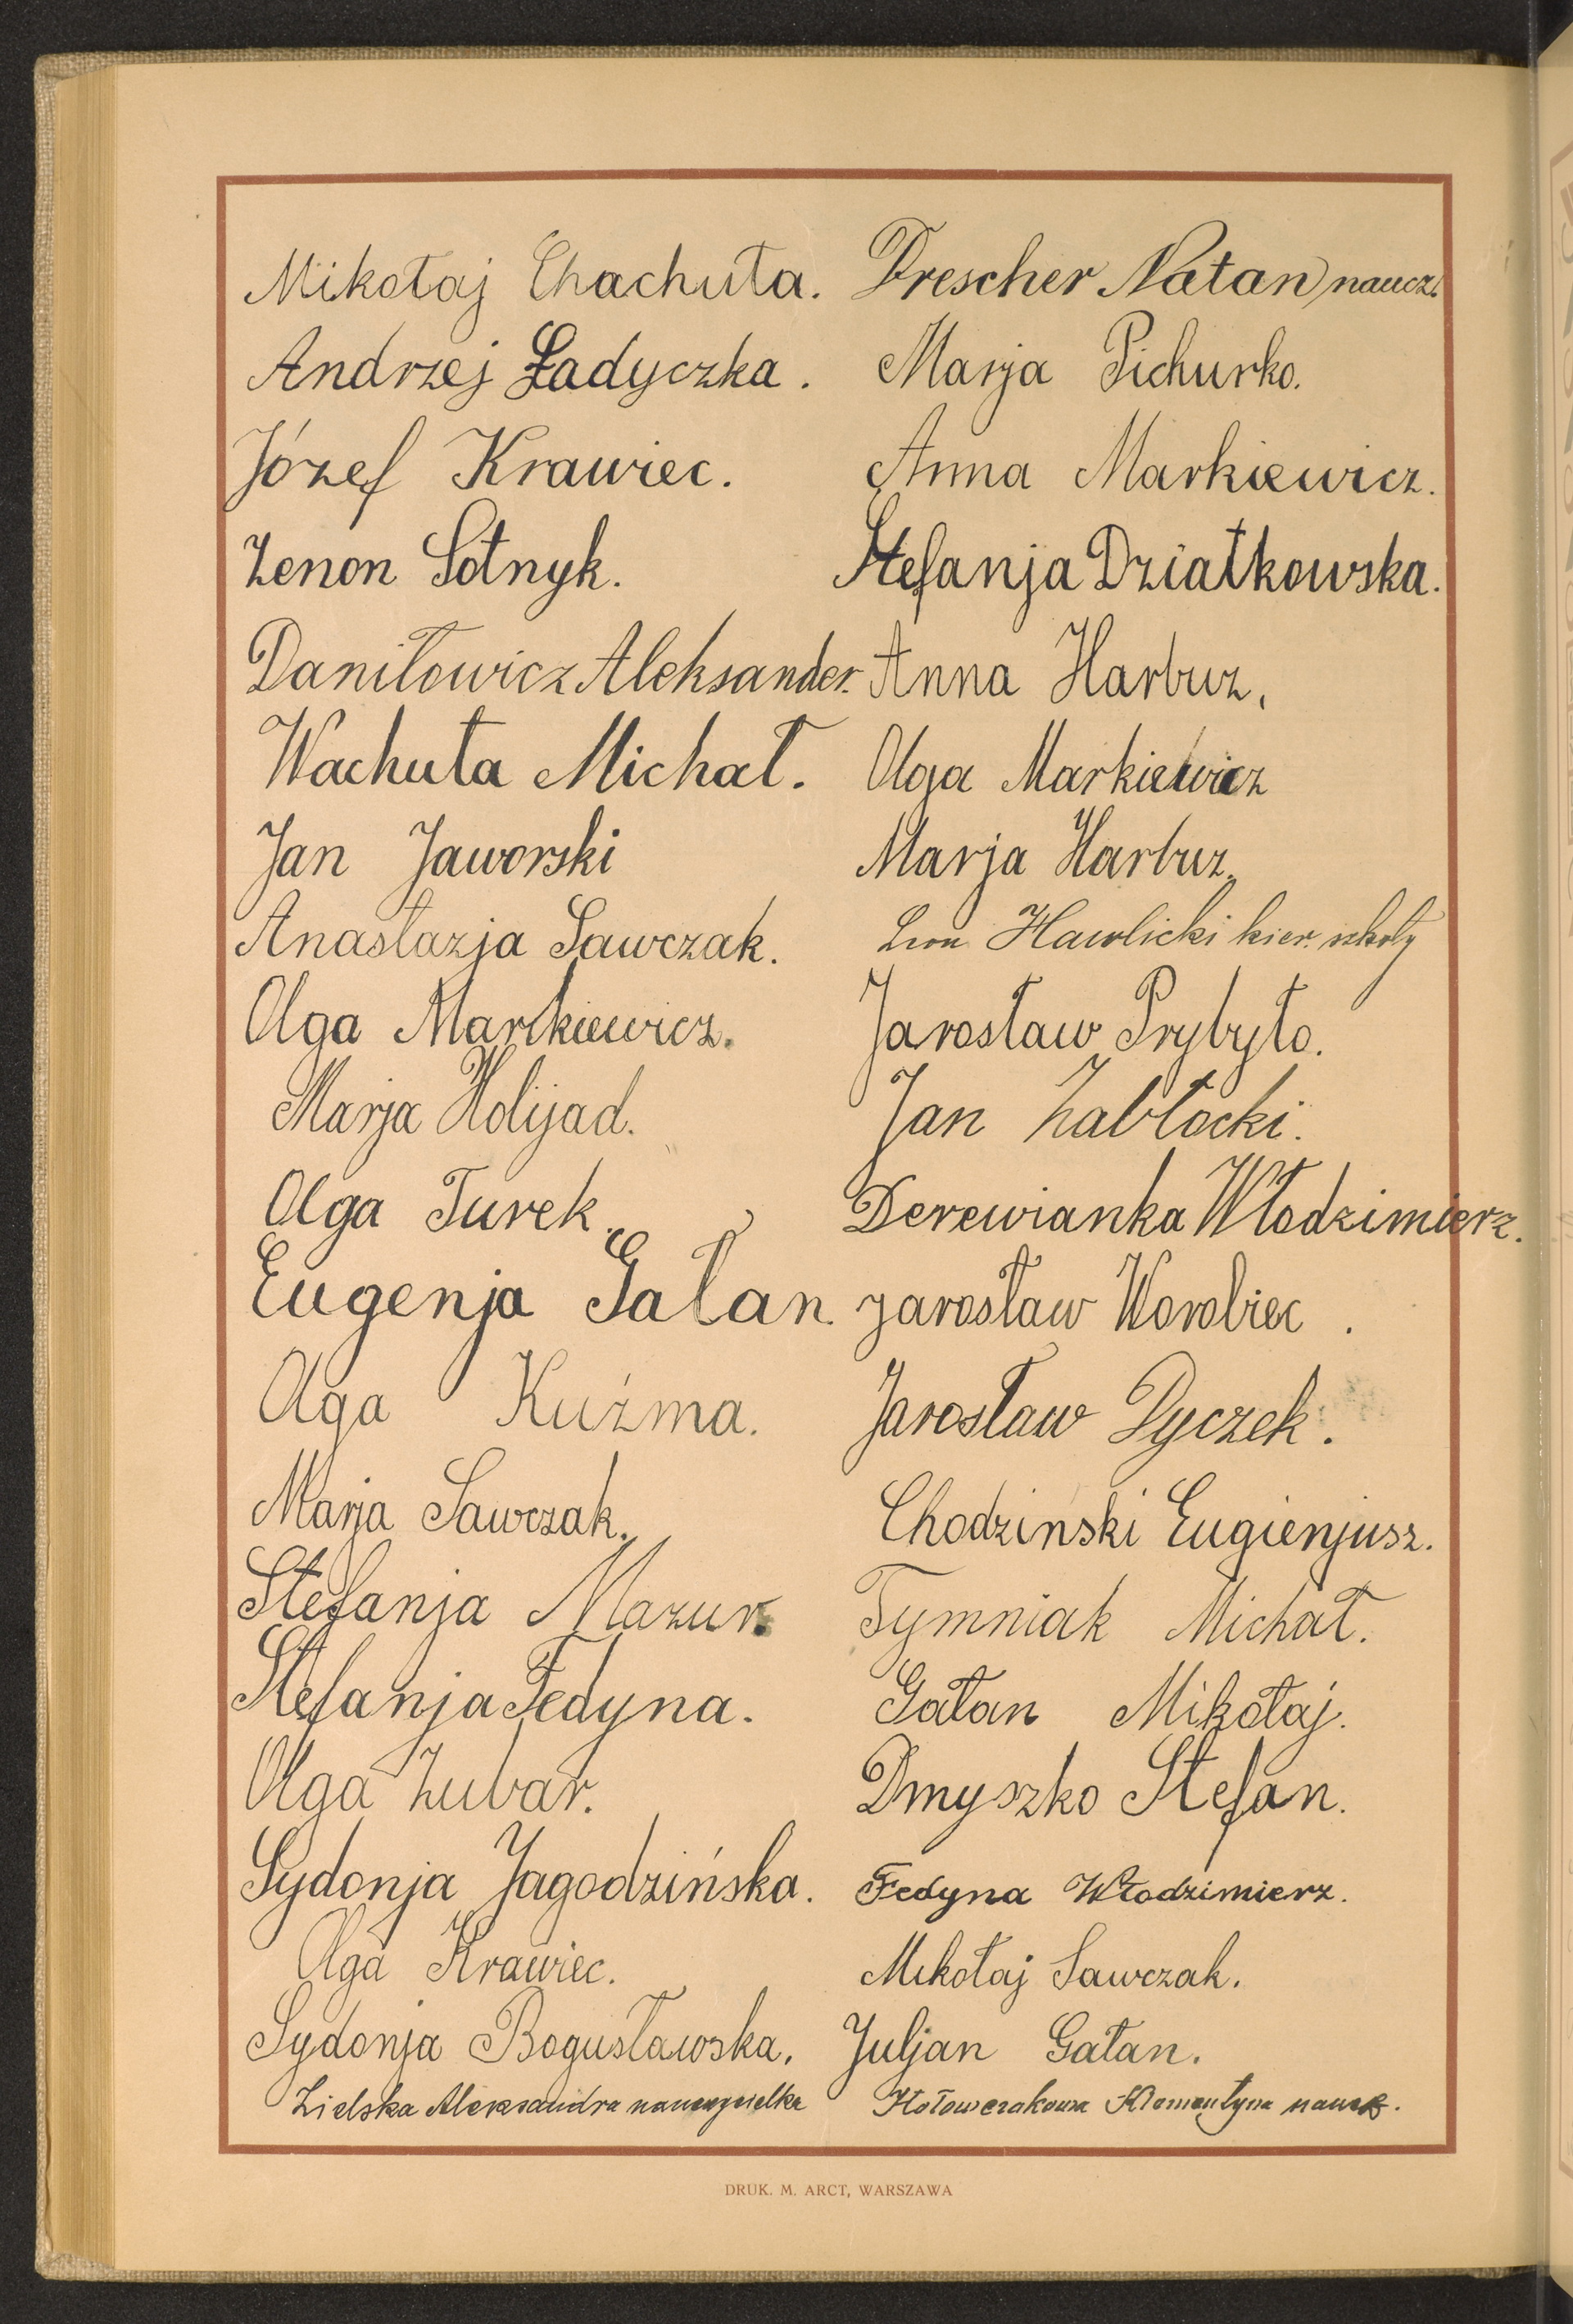 Mikołaj Chachuła.
Andrzej Ładyczka.
Józef Krawiec.
Zenon Sotnyk.
Daniłowicz Aleksander.
Wachuła Michał.
Jan Jaworski
Anastazja Sawczak.
Olga Markiewicz.
Marja Holijad.
Olga Turek.
Eugenja Gałan.
Olga Kuźma.
Marja Sawczak.
Stefanja Mazur.
Stefanja Fedyna.
Olga Zubar.
Sydonja Jagodzińska.
Olga Krawiec.
Sydonja Bogusławska.
Zielska Aleksandra nauczycielka
Drescher Natan naucz.
Marja Pichurko.
Anna Markiewicz.
Stefanja Działkowska.
Anna Harbuz.
Olga Markiewicz
Marja Harbuz.
Leon Hawlicki kier. szkoły
Jarosław Prybyło.
Jan Zabłocki.
Derewianka Włodzimierz.
Jarosław Worobiec.
Jarosław Dyczek.
Chodziński Eugienjusz.
Tymniak Michał.
Gałan Mikołaj.
Dmyszko Stefan.
Fedyna Włodzimierz.
Mikołaj Sawczak.
Juljan Gałan.
Hołowczakowa Klementyna naucz.
DRUK. M. ARCT, WARSZAWA